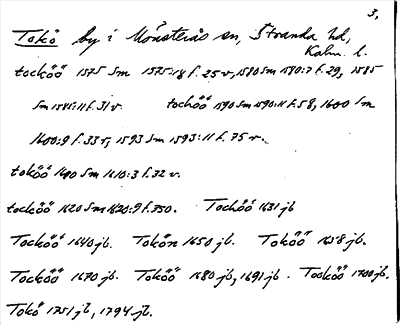 3.
Tokö by i Mönsterås sn, Stranda hd,
Kalm. l.
tocköö 1575 Sm 1575:18 f. 25 v, 1580 Sm 1580:7 f. 29, 1585
Sm 1585:11 f. 31 v. tochöö 1590 Sm 1590:11 f. 58, 1600 Sm
1600:9 f. 33 v, 1593 Sm 1593:11 f. 75 v.
toköö 1610 Sm 1610:3 f. 32 v.
tocköö 1620 Sm 1620:9 f. 350. Tochöö 1631 jb
Tocköö 1640 jb. Tokön 1650 jb. Toköö 1658 jb.
Tocköö 1670 jb. Toköö 1680 jb, 1691 jb. Tocköö 1700 jb.
Tokö 1751 jb, 1794 jb.